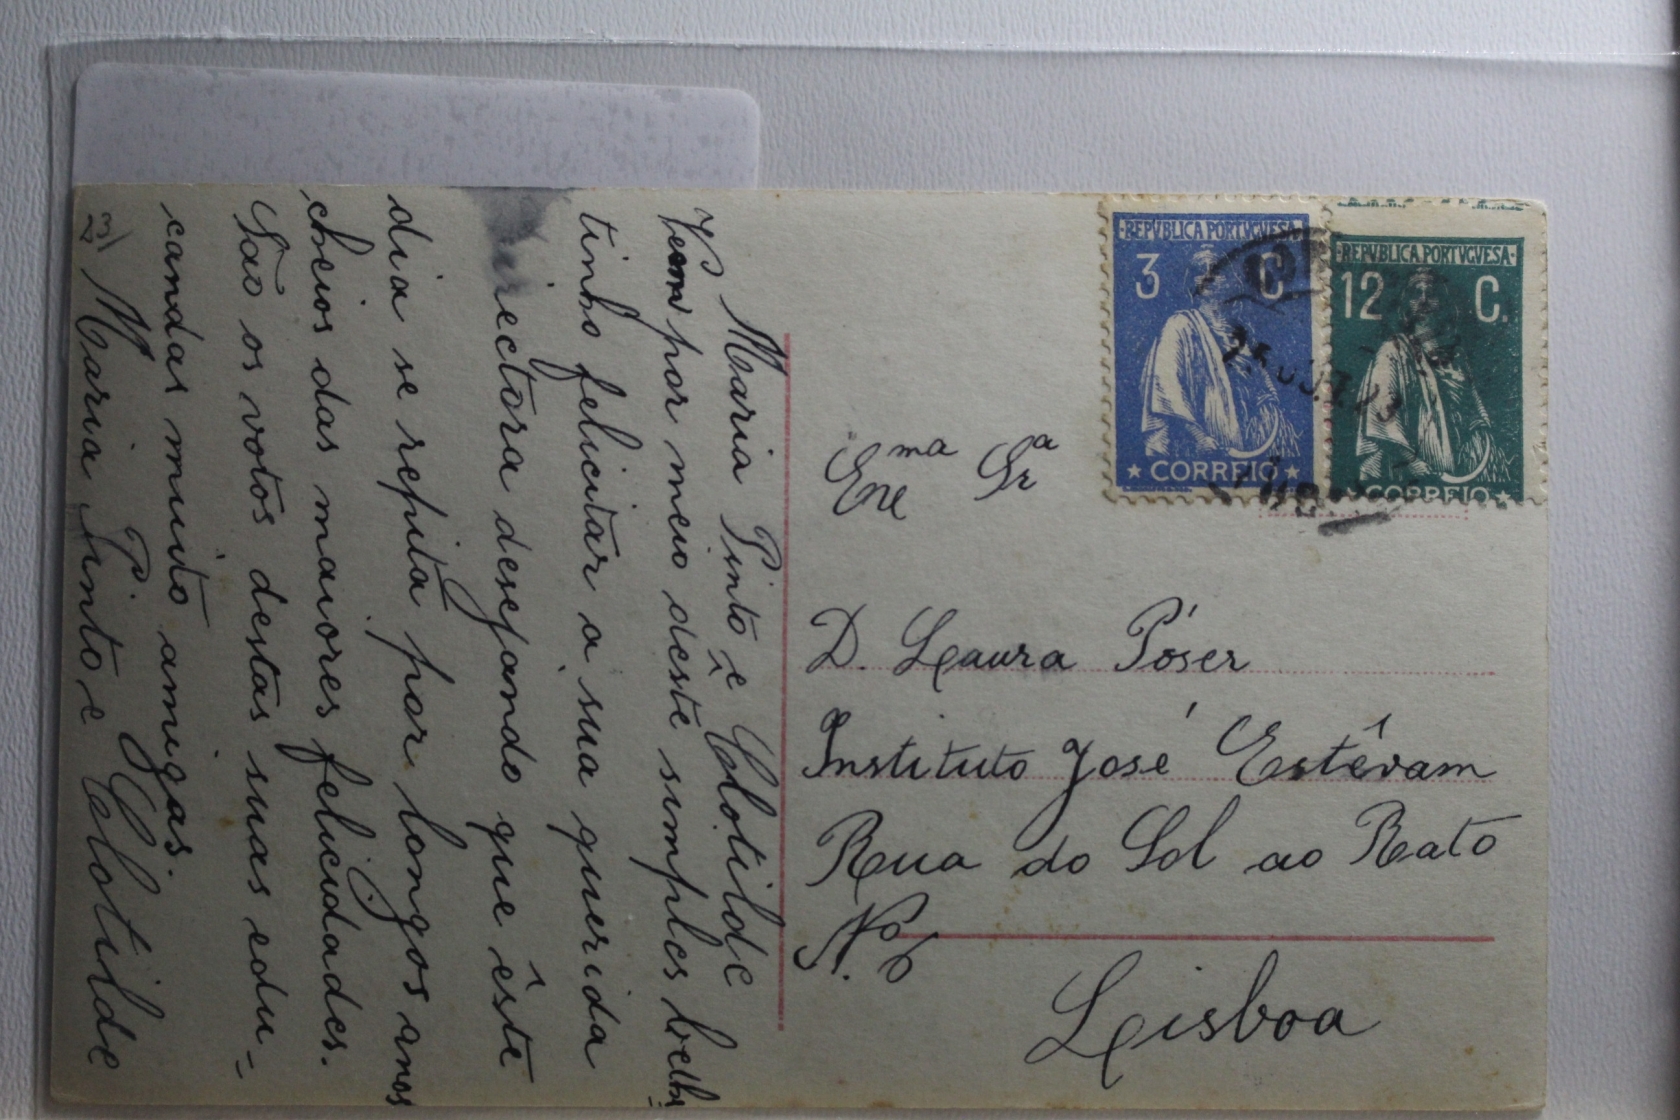 Maria Pinto e Clotilde
Veem por meio dêste simples bilhe=
tinho felicitar a sua querida
directora desejando que êste
dia se repita por longos anos
cheios das maiores felicidades.
São os votos destas suas edu=
candas muito amigas.
Maria Pinto e Clotilde
REPVBLICA PORTVGVESA
3 C.
CORREIO
REPVBLICA PORTVGVESA
12 C.
CORREIO
Exma Sra
D. Laura Póser
Instituto José Estêvam
Rua do Sol ao Rato
No 6
Lisboa